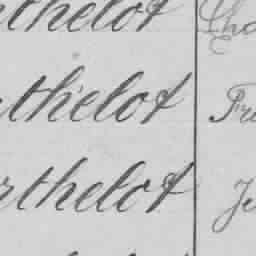 thelot Cha
thelot Fre
rthelot Je